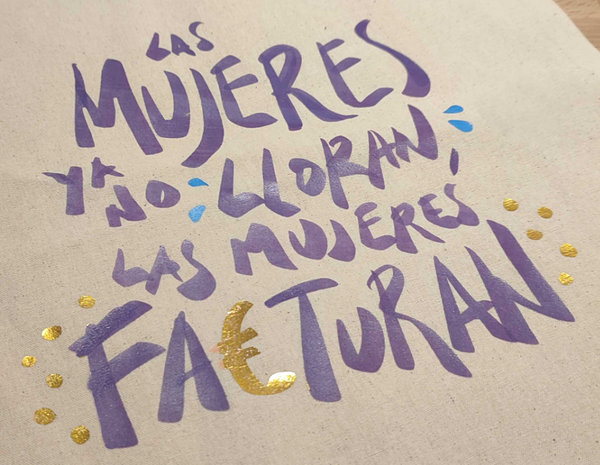 LAS
MUJERES
YA NO LLORAN,
LAS MUJERES
FA€TURAN